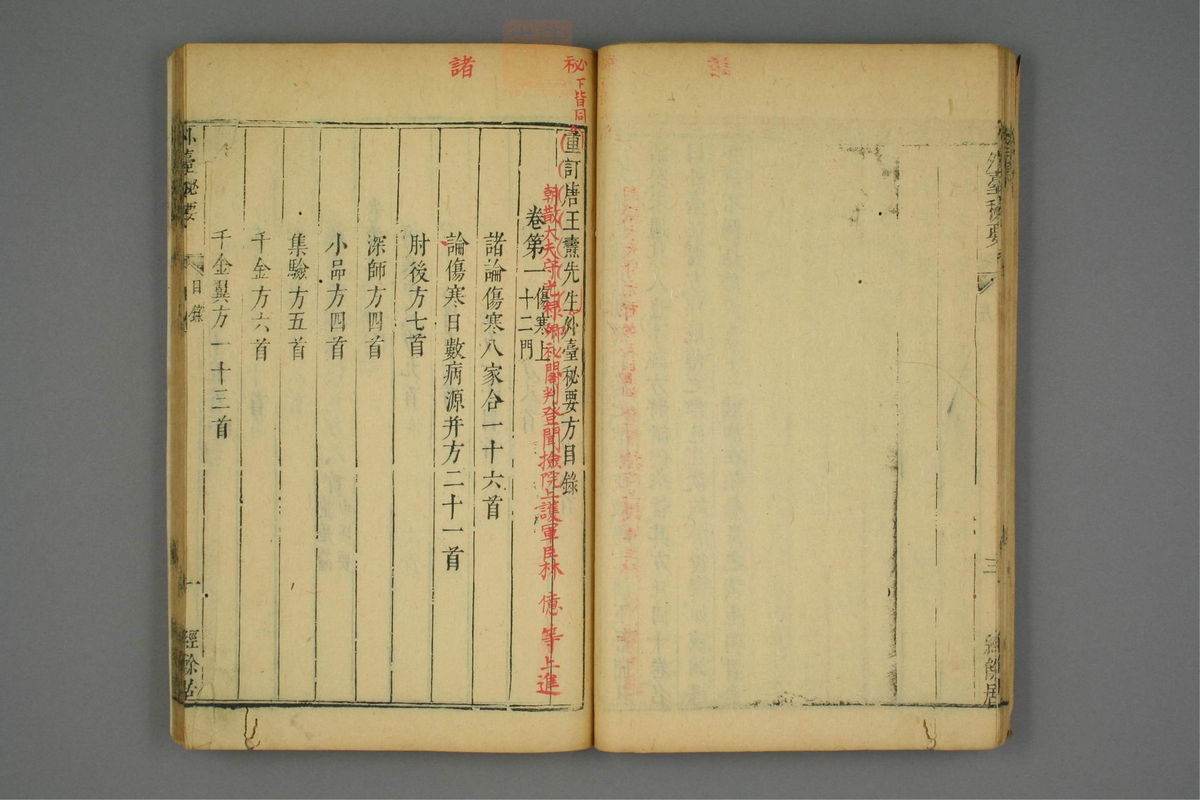 外臺秘要
三
經餘居
秘
下皆同
諸
重訂唐王燾先生外臺秘要方目錄
朝散大夫守光祿卿祕閣判登聞撿院上護軍臣林億等上進
卷第一
傷寒上
一十二門
諸論傷寒八家合一十六首
論傷寒日數病源并方二十一首
肘後方七首
深師方四首
小品方四首
集驗方五首
千金方六首
千金翼方一十三首
外臺秘要
目錄
一
經餘居